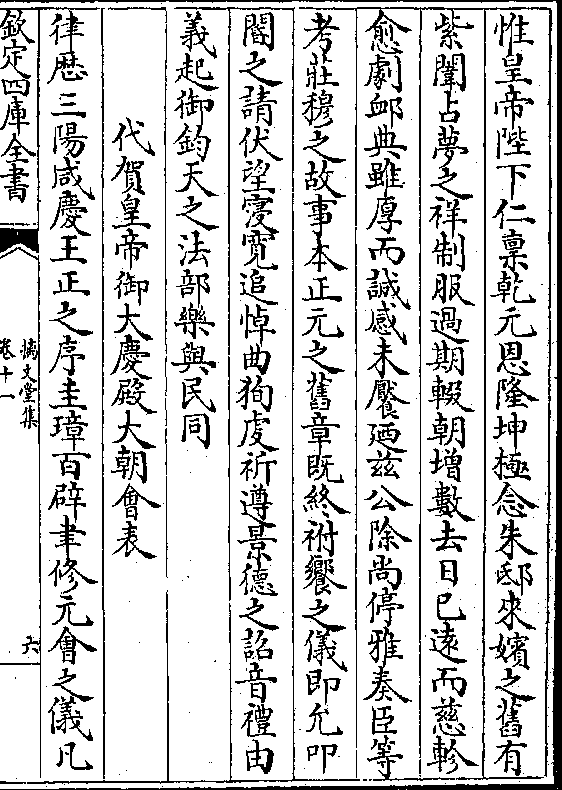 惟皇帝陛下仁禀乾元恩隆坤極念朱邸來嬪之舊有
紫闈占夢之祥制服過期輟朝增數去日已遠而慈軫
愈劇䘏典雖厚而誠感未饜廼兹公除尚停雅奏臣等
考莊穆之故事本正元之舊章既終祔饗之儀即允叩
閽之請伏望寖寛追悼曲狥虔祈遵景德之詔音禮由
義起御鈞天之法部樂與民同
代賀皇帝御大慶殿大朝會表
律歴三陽咸慶王正之序圭璋百辟聿修元會之儀凡
欽定四庫全書
摛文堂集
卷十一
六